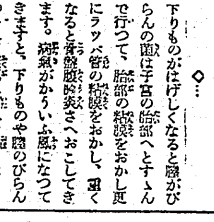 ◇…
下りものがはげしくなると膣がび
らんの菌は子宮の胎部へとすゝん
で行つて、胎部の粘膜をおかし更
にラッパ管の粘膜をおかし、重く
なると骨盤腹膜炎さへおこしてき
ます。病氣がかういふ風になつて
きますと、下りものや膣のびらん